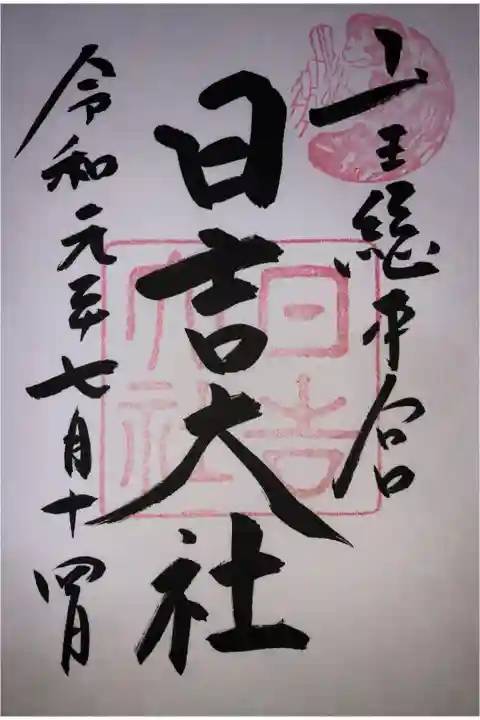 山王總本宮
日吉大社
令和元年七月十四日
日吉大社